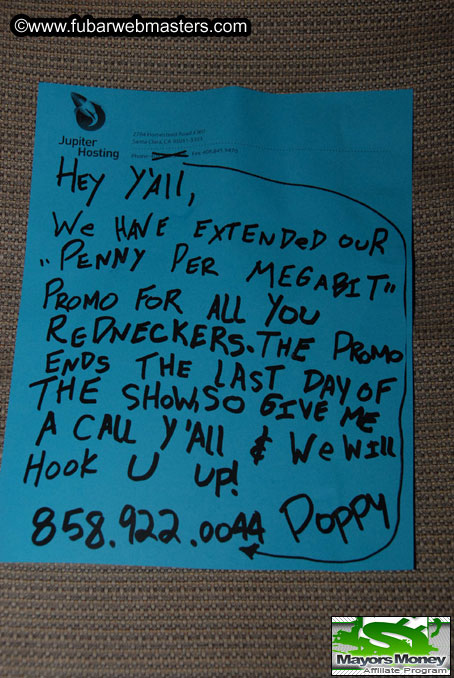 ©www.fubarwebmasters.com
Jupiter
Hosting
Santa Clara, CA
Phone:
HEY Y'All,
We HAVE EXTENDeD OUR
"PENNY PER MEGABIT"
PROMO FOR ALL YOU
REDNECKERS. THE PROMO
ENDS THE LAST DAY OF
THE SHOW, SO GIVE ME
A CALL Y'All & We Will
HOOK U UP!
858.922.0044 POPPY
Mayors Money
Affiliate Program